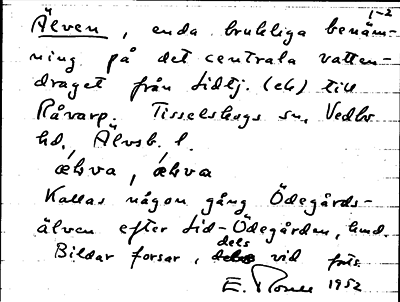 1-2
Älven, enda brukliga benäm-
ning på det centrala vatten-
draget från Lidtj. (ek) till
Råvarp. Tisselskogs sn, Vedbo
hd, Älvsb. l.
Kallas någon gång Ödegårds-
älven efter Lid-Ödegården, hmd.
Bildar forsar, dels vid
E. 1952